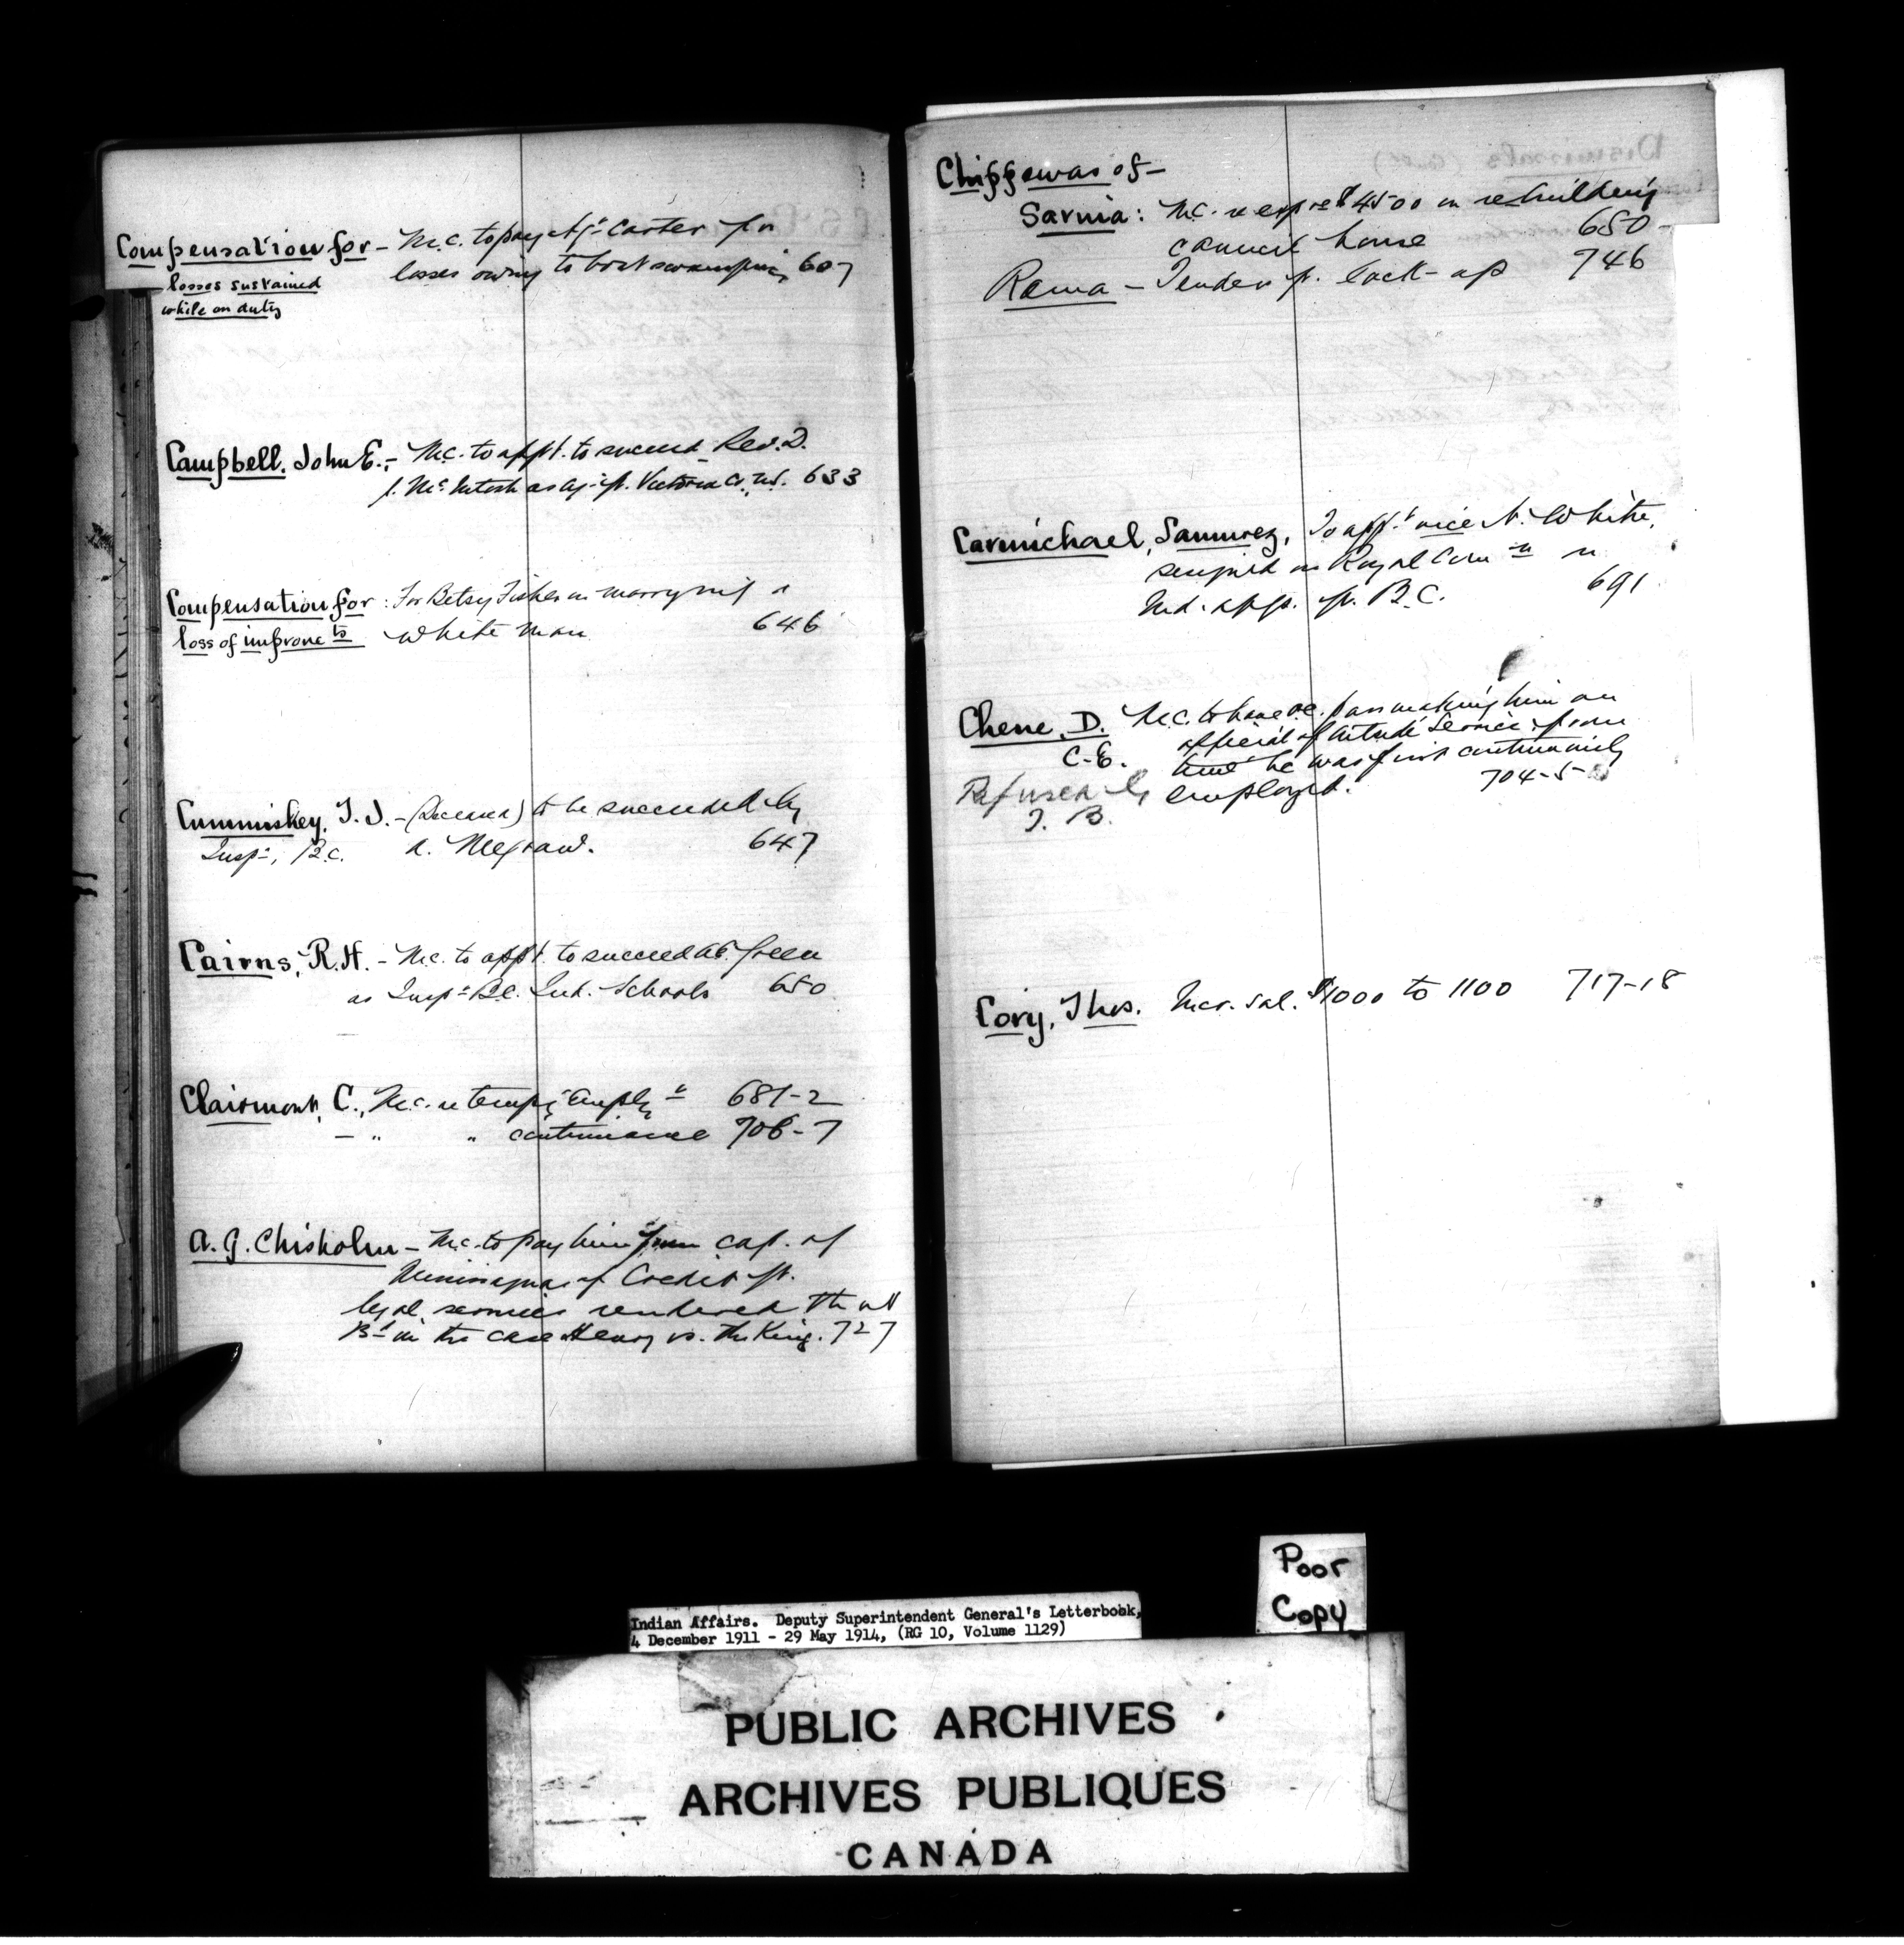 Compensation for - M.C. to pay Agt Carter for
losses sustained losses owing to boat swamping 607
while on duty
Campbell, John E. - M.C. to appt. to succeed Rev. D.
J. McIntosh as Ag. fr. Victoria Co., N.S. 633
Compensation for : For Betsy Fisher on marrying a
loss of improvets white man 646
Cummiskey, T. J. - (Deceased) to be succeeded by
Inspr, B.C. A. Megraw. 647
Cairns, R.H. - M.C. to appt. to succeed A.E. Green
as Inspr B.C. Ind. Schools 650
Clairmont, C., M.C. re tempy emplyt 681-2
- " " continuance 706-7
A. G. Chisholm - M.C. to pay him from cap. of
Mississaguas of Credit fr.
legal services rendered that
Bd in the case Henry vs. The King. 727
Chippewas of -
Sarnia: M.C. re expre $4500 in rebuilding
council house 650
Rama - Tender fr. lock-up 746
Carmichael, To appt vice N. White,
resigned on Royal Comn re
Ind. apps. fr. B.C. 691
Chene, D. M.C. to have O.C. pass making him an
C.E. official of Outside Service from
time he was first continuously
Refused by employed. 704-5-
T. B.
Cory, Thos. Incr. sal. $1000 to 1100 717-18
Poor
Copy
Indian Affairs. Deputy Superintendent General's Letterbook,
4 December 1911 - 29 May 1914, (RG 10, Volume 1129)
PUBLIC ARCHIVES
ARCHIVES PUBLIQUES
CANADA